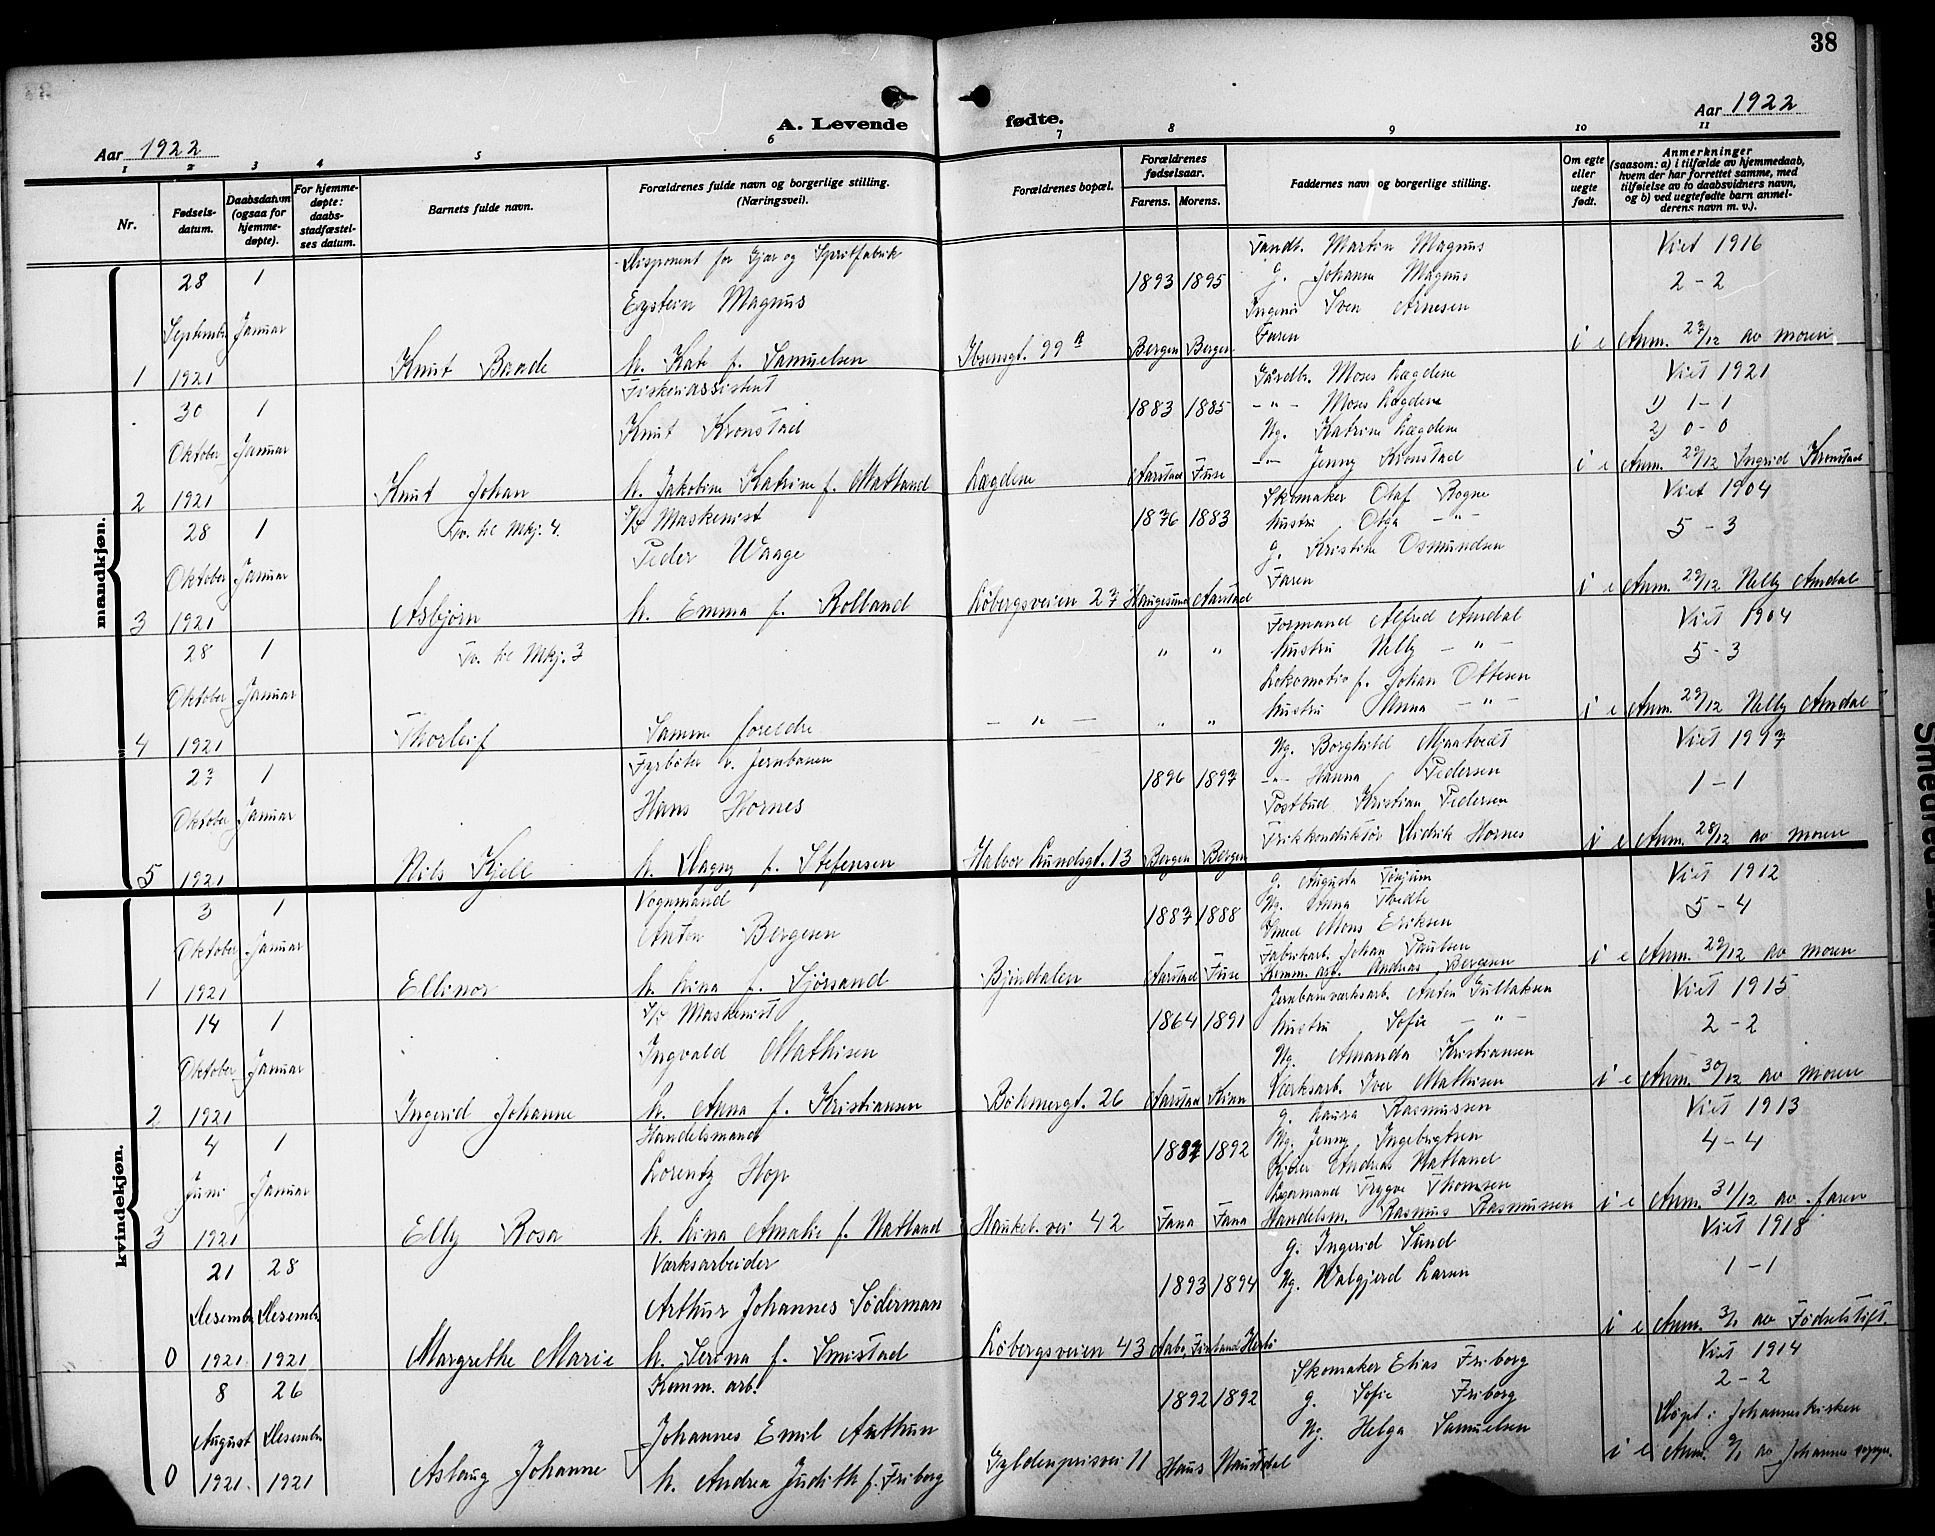 38
A. Levende fødte.
Aar 1922
Aar 1922
1 2 3 4 5 6 7 8 9 10 11
Nr.
Fødsels-datum.
Daabsdatum (ogsaa for hjemme-døpte).
For hjemme-døpte: daabs-stadfæstel-ses datum.
Barnets fulde navn.
Forældrenes fulde navn og borgerlige stilling. (Næringsvei).
Forældrenes bopæl.
Forældrenes fødselsaar.
Farens. Morens.
Faddernes navn og borgerlige stilling.
Om egte eller uegte født.
Anmerkninger (saasom: a) i tilfælde av hjemmedaab, hvem der har forrettet samme, med tilføielse av to daabsvidners navn, og b) ved uegtefødte barn anmel-derens navn m. v.).
mandkjøn.
1
28 September 1921
1 Januar
Knut Baade
Disponent for Gjær og Spritfabrik
Eystein Magnus
h. Kate f. Samuelsen
Ibsensgt. 99 a
1893 1895
Bergen Bergen
Fandt. Martin Magnus
g. Johanne Magnus
Ingeniør Sven Arnesen
Faren
i e
Viet 1916
2 - 2
Anm. 27/12 av moren
2
30 Oktober 1921
1 Januar
Knut Johan
Fiskeriassistent
Knut Kronstad
h. Jakobine Katrine f. Matland
Lægdene
1883 1885
Aarstad Fuse
Gårdbr. Moses Lægdene
-"- Moses Lægdene
Ug. Katrine Lægdene
-"- Jenny Kronstad
i e
Viet 1921
1) 1 - 1
2) 0 - 0
Anm. 29/12 Ingrid Kronstad
3
28 Oktober 1921
1 Januar
Tv. til Mkj. 4.
Asbjørn
Maskinist
Peder Waage
h. Emma f. Rolland
Løbergsveien 27
1876 1883
Haugesund Aarstad
Skomaker Olaf Rogne
hustru Olga -"-
g. Kristine Osmundsen
Faren
i e
Viet 1904
5 - 3
Anm. 29/12 Nelly Amdal
4
28 Oktober 1921
1 Januar
Tv. til Mkj. 3
Thorleif
Samme foreldre
-"-
" "
" "
Formand Alfred Amdal
hustru Nelly -"-
Lokomotiv f. Johan Ottesen
hustru Anna -"-
i e
Viet 1904
5 - 3
Anm. 29/12 Nelly Amdal
5
27 Oktober 1921
1 Januar
Nils Kjell
Fyrbøter v. Jernbanen
Hans Hornes
h. Dagny f. Stefensen
Halvor Lundsgt. 13
1896 1897
Bergen Bergen
Ug. Borghild Mjaatvedt
-"- Hanna Pedersen
Postbud Kristian Pedersen
Trikkonduktør Didrik Hornes
i e
1 - 1
Anm. 28/12 av moren
kvindekjøn.
1
3 Oktober 1921
1 Januar
Ellinor
Vognmand
Anton Bergesen
h. Lina f. Sjørsand
Bjøndalen
1887 1888
Aarstad Fuse
g. Augusta
Ug. Anna Tvedte
Smed Mons Eriksen
Fabrikarb. Johan Paulsen
Komm. arb. Andreas Bergesen
i e
Viet 1912
5 - 4
Anm. 29/12 av moren
2
14 Oktober 1921
1 Januar
Ingerid Johanne
Maskinist
Ingvald Mathisen
h. Anna f. Kristiansen
Bøhmergt. 26
1864 1891
Aarstad Kinn
Jernbaneværksarb. Anton Gullaksen
hustru Sofie -"-
Ug. Amanda Kristiansen
Værksarb. Iver Mathisen
i e
Viet 1915
2 - 2
Anm. 30/12 av moren
3
4 Juni 1921
1 Januar
Elly Rosa
Handelsmand
Lorentz Hop
h. Lina Amalie f. Natland
Haukel. vei 42
1892
Fana Fana
g. Laura Rasmussen
Ug. Jenny Ingebrigtsen
Andreas Natland
Lagermand Trygve Thomsen
Handelsm. Rasmus Rasmussen
i e
Viet 1913
4 - 4
Anm. 31/12 av faren
0
21 Desember 1921
28 Desember 1921
Margrethe Marie
Værksarbeider
Arthur Johannes Söderman
h. Serina f. Smistad
Løbergsveien 43
1893 1894
Aabo, Finland
g. Ingerid Sund
Ug. Walgjerd Larsen
i e
Viet 1918
1 - 1
Anm. 3/1 av Fødselstift.
0
8 August 1921
26 Desember 1921
Aslaug Johanne
Komm. arb.
Johannes Emil Anthun
h. Andrea Judith f. Friborg
Gyldenprisvei 11
1892 1892
Haus
Skomaker Elias Friborg
g. Sofie Friborg
Ug. Helga Samuelsen
i e
Viet 1914
2 - 2
Døpt i Johanneskirken
Anm. 9/1 av Johannes